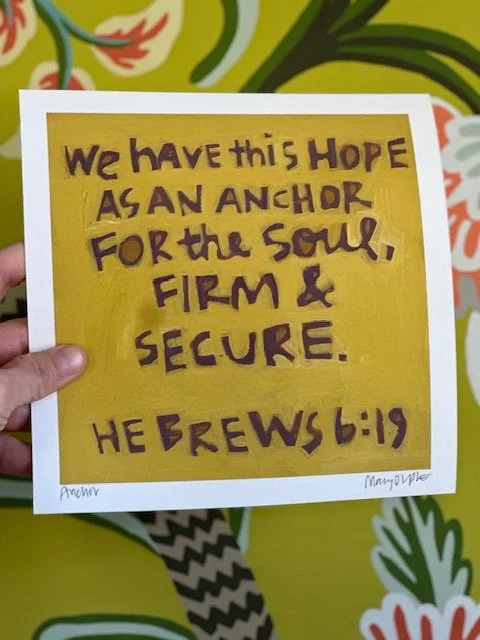 We have this HOPE
AS AN ANCHOR
FOR the SOUL,
FIRM &
SECURE.
HEBREWS 6:19
Anchor